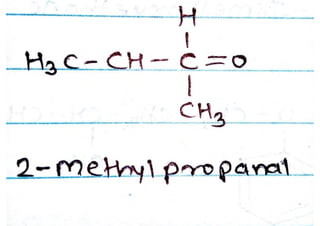 H
H3C-CH-C=O
CH3
2-methylpropanal